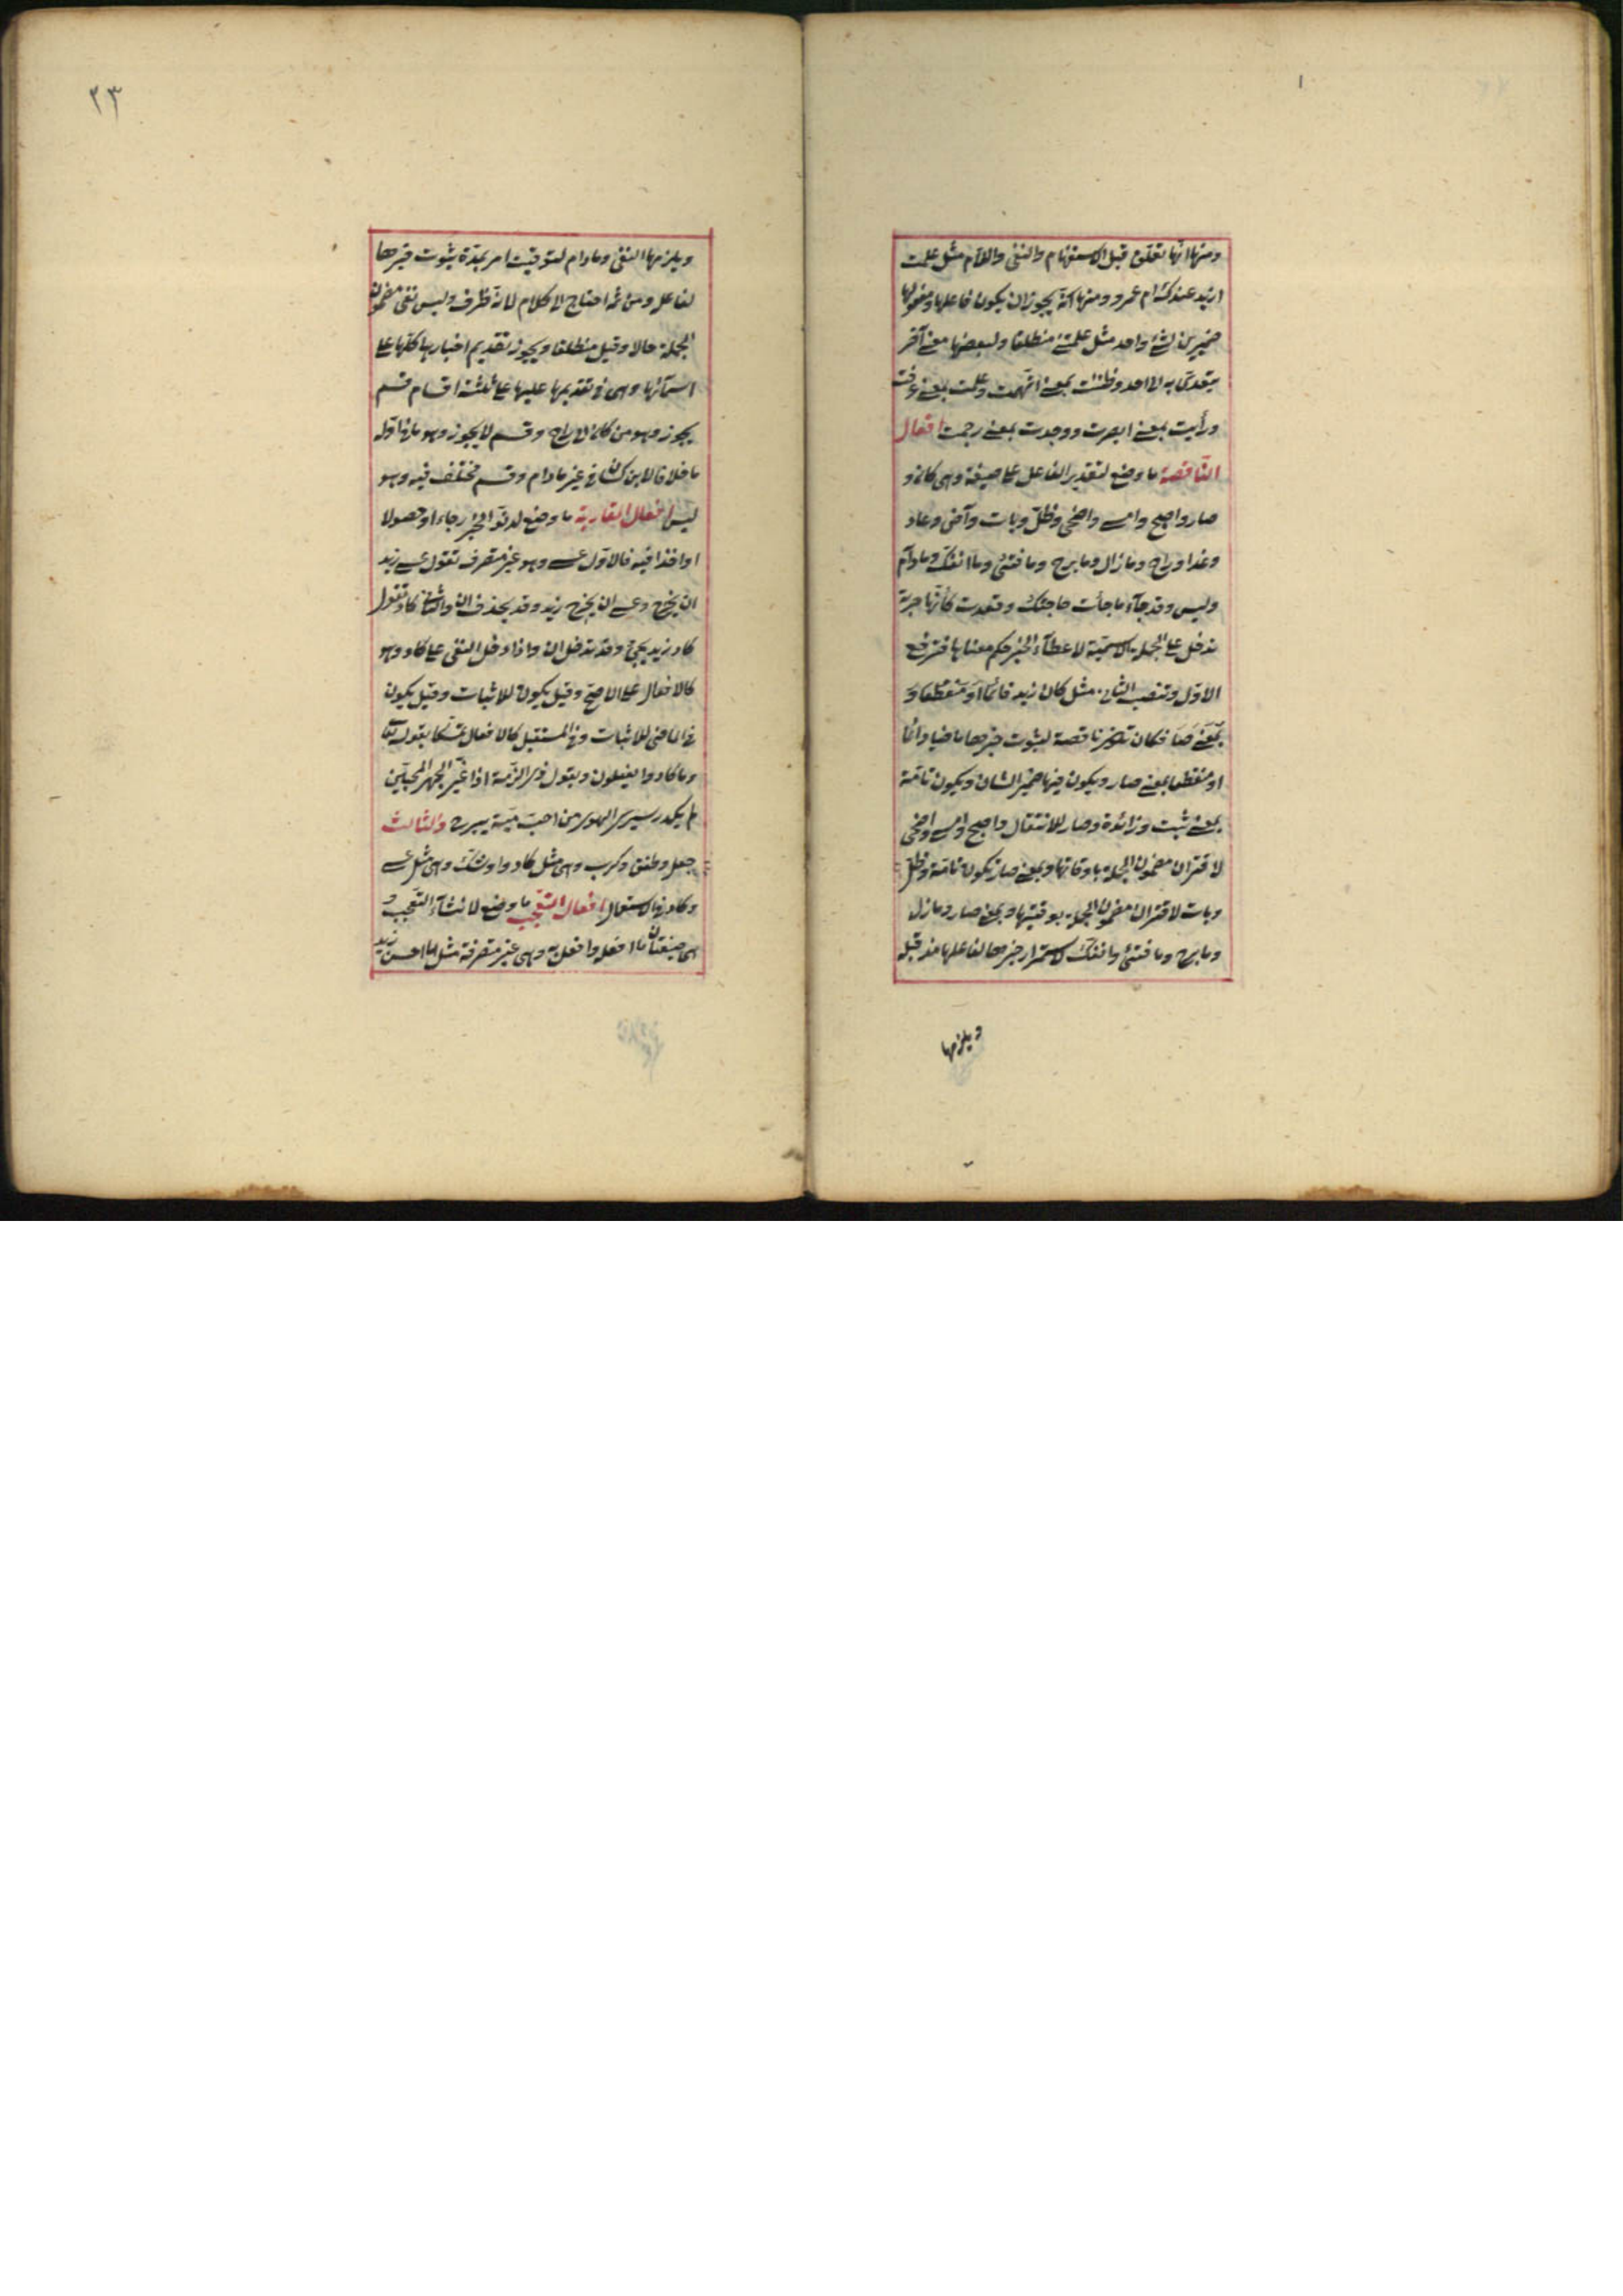 ومنها انها تعلق قبل الاستفهام والنفى واللام مثل علمت
ازيد عندك ام عمرو ومنها انه يجوز ان يكون فاعلها ومفعولها
ضميرين لشئ واحد مثل علمتنى منطلقا ولبعضها معنى آخر
يتعدى به الى واحد وظننت بمعنى اتهمت وعلمت بمعنى عرفت
ورأيت بمعنى ابصرت ووجدت بمعنى افعال
الناقصة ما وضع لتقدير الفاعل على صيغة وهى كان و
صار واصبح وامسى واضحى وظل وبات وآض وعاد
وغدا وراح وما زال وما برح وما فتئ وما انفك وما دام
وليس وقد جاء ما جائت حاجتك وقعدت كانها حربة
تدخل على الجملة الاسمية لاعطاء الخبر حكم معناها فترفع
الاول وتنصب الثانى مثل كان زيد قائما او منقطعا و
بمعنى صا فكان تكون ناقصة لثبوت خبرها ماضيا دائما
او منقطعا بمعنى صار ويكون فيها ضمير الشان ويكون تامة
بمعنى ثبت وزائدة وصار للانتقال واصبح وامسى واضحى
لاقتران مضمون الجملة باوقاتها وبمعنى صار تكون تامة وظل
وبات لاقتران مضمون الجملة بوقتيهما وبمعنى صار وما زال
وما برح وما فتئ وانفك لاستمرار خبرها لفاعلها مذ قبله
ويلزمها
٢٣
ويلزمها النفى وما دام لتوقيت امر بمدة ثبوت خبرها
لفاعل ومن ثم احتاج الى كلام لانه ظرف وليس نفى مضمون
الجملة حالا وقيل منطلقا ويجوز تقديم اخبارها كلها على
اسمائها وهى فى تقديمها عليها على ثلثة اقسام قسم
يجوز وهو من كان الى راح وقسم لا يجوز وهو ما فى اوله
ما خلافا لابن كيسان فى غير ما دام وقسم مختلف فيه وهو
ليس افعال المقاربة ما وضع لدنو الخبر رجاء او حصولا
او اخذا فيه فالاول عسى وهو غير متصرف تقول عسى زيد
ان يخرج وعسى ان يخرج زيد وقد يحذف ان والثانى كاد تقول
كاد زيد يجئ وقد تدخل ان واذا دخل النفى على كاد وهو
كالافعال على الاصح وقيل يكون للاثبات وقيل يكون
فى الماضى للاثبات وفى المستقبل كالافعال تمسكا بقوله تعا
وما كادوا يفعلون وبقول ذى الرمة اذا غير الهجر المحبين
لم يكد رسيس الهوى من احب مية يبرح والثالث
جعل وطفق وكرب وهى مثل كاد واوشك وهى مثل عسى
وكاد فى الاستعمال افعال التعجب ما وضع لانشاء التعجب و
هى صيغتان ما افعله وافعل به وهى غير متصرفة مثل ما احسن زيد